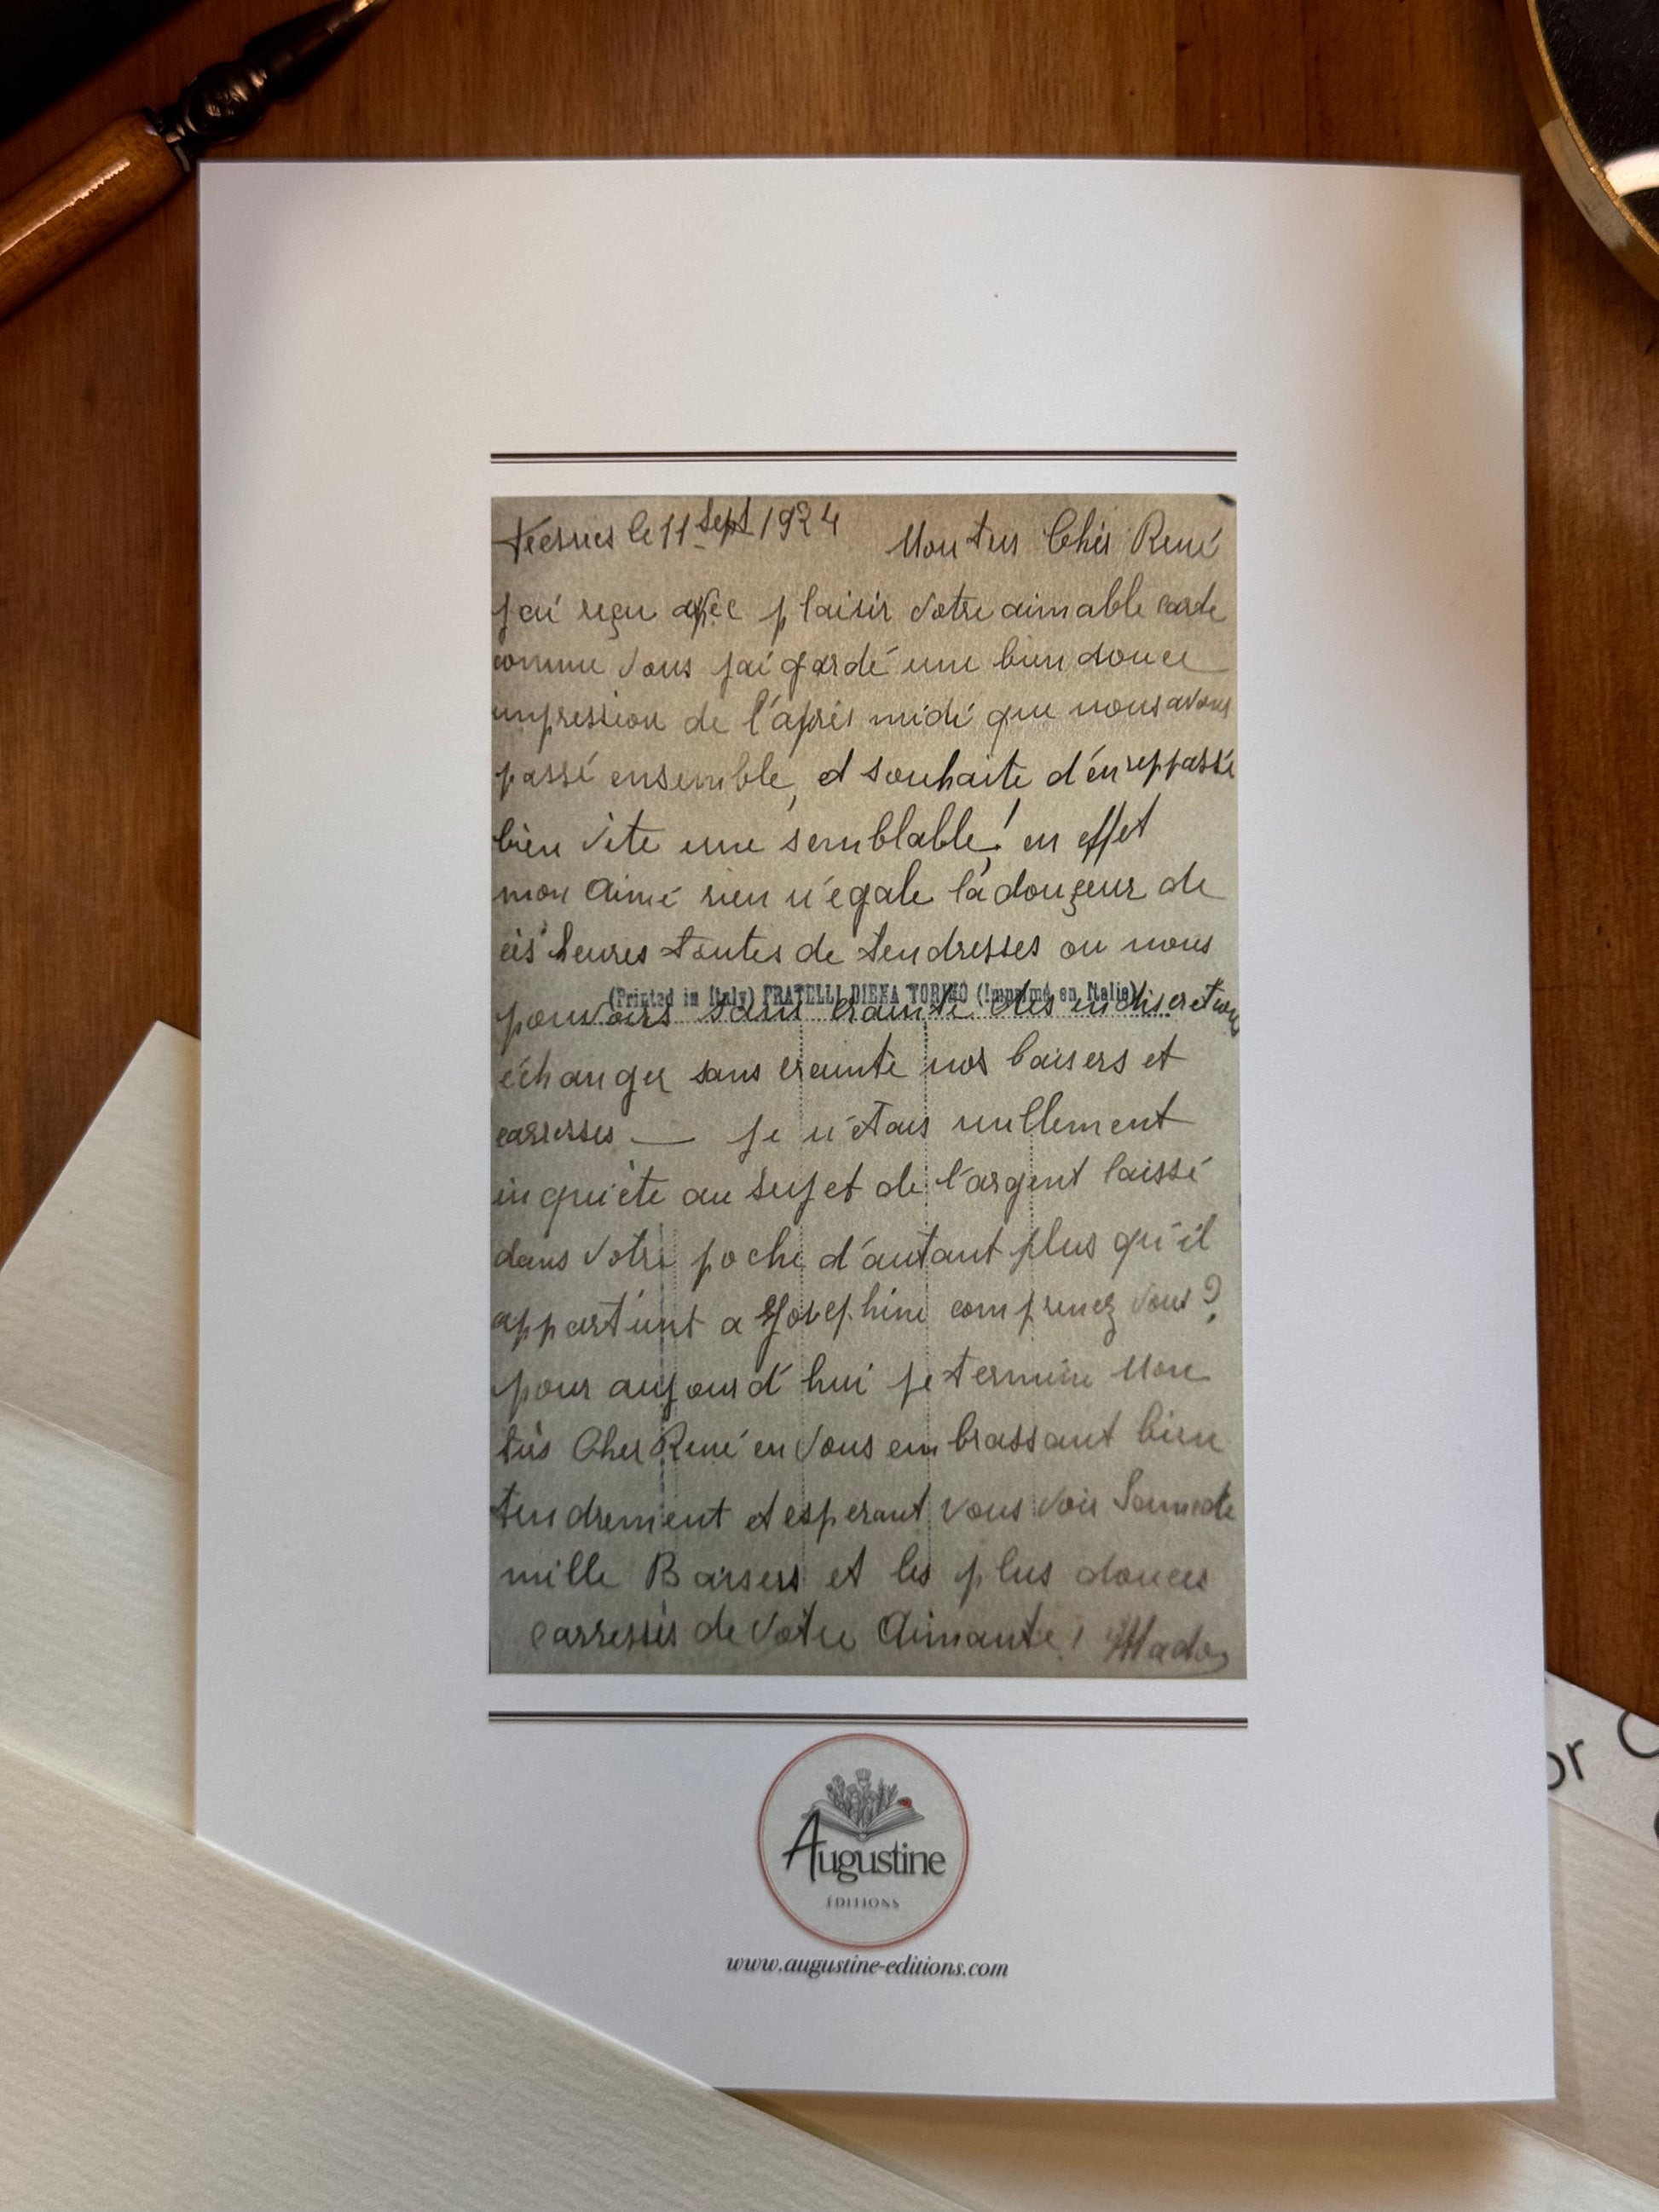 le 11 Sept 1924 Mon très Cher René
j'ai reçu avec plaisir votre aimable carte
comme vous j'ai gardé une bien douce
impression de l'après midi que nous avons
passé ensemble, et souhaite d'en reppassé
bien vite une semblable! en effet
mon Aimé rien n'égale la douçeur de
ces heures toutes de tendresses ou nous
(Printed in Italy) FRATELLI DIENA TORINO (Imprimé en Italie)
pouvoirs sans crainte des indiscretions
échanger sans crainte nos baisers et
carresses — je n'étais nullement
inquiète au sujet de l'argent laissé
dans votre poche d'autant plus qu'il
appartient a Josephine comprenez vous?
pour aujourd'hui je termine Mon
très Cher René en vous embrassant bien
tendrement et esperant vous voir Samedi
mille Baisers et les plus douces
carresses de votre Aimante! Mado
Augustine
ÉDITIONS
www.augustine-editions.com
or